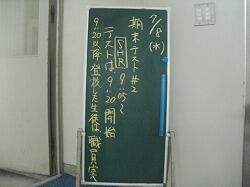 7/8(水)
期末テスト#2
SHR 9:05〜
テストは、9:20開始
9:20以降登校した生徒は、職員室